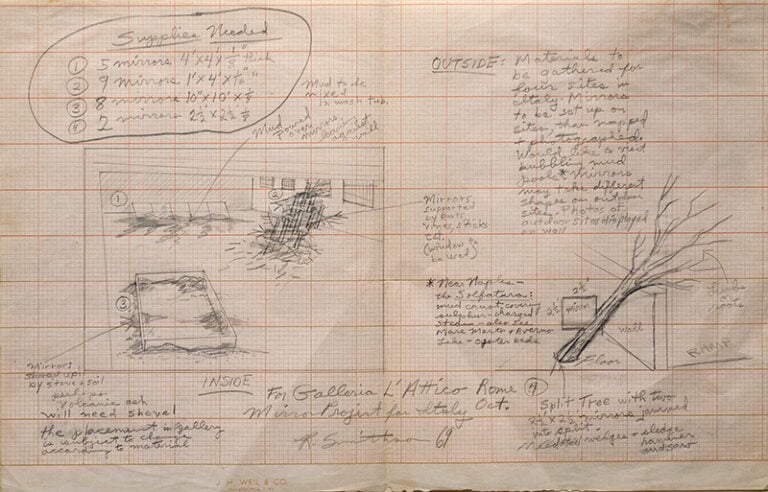 Supplies Needed
① 5 mirrors 4'x4'x 1/8" thick
② 9 mirrors 1'x4'x
③ 8 mirrors 10"x10"x 1/8
④ 2 mirrors 2½ x 2½
Mud to be
mixed
in wash tub.
Mud
poured
over
mirrors
leaning
against
wall
①
②
③
Mirrors
supported
by Roots,
vines, sticks
etc.
(window to
be used)
Mirrors
shored up
by stone + soil
perhaps
volcanic ash
will need shovel
the placement in gallery
is subject to change
according to material
INSIDE
OUTSIDE: Materials to
be gathered for
four sites in
Italy. Mirrors
to be set up on
sites, then mapped
+ photographed.
Would like to visit
bubbling mud
pools.* Mirrors
may take different
shapes on outdoor
sites. Photos of
outdoor sites displayed
on wall
* Near Naples –
the Solfatara:
mud crust, cover
sulphur-charged
steam – also see
Mare Morto + Averno
Lake – oyster beds
2½'
2½'
mirror
Wall
Floor
limbs
roots
RAMP
④
Split Tree with two
2½ x 2½ mirrors jammed
into split.
Need steel wedges + sledge
hammer
and saw
For Galleria L'Attico Rome
Mirror Project for Italy Oct.
R. Smithson 69
J. H. WEIL & CO.